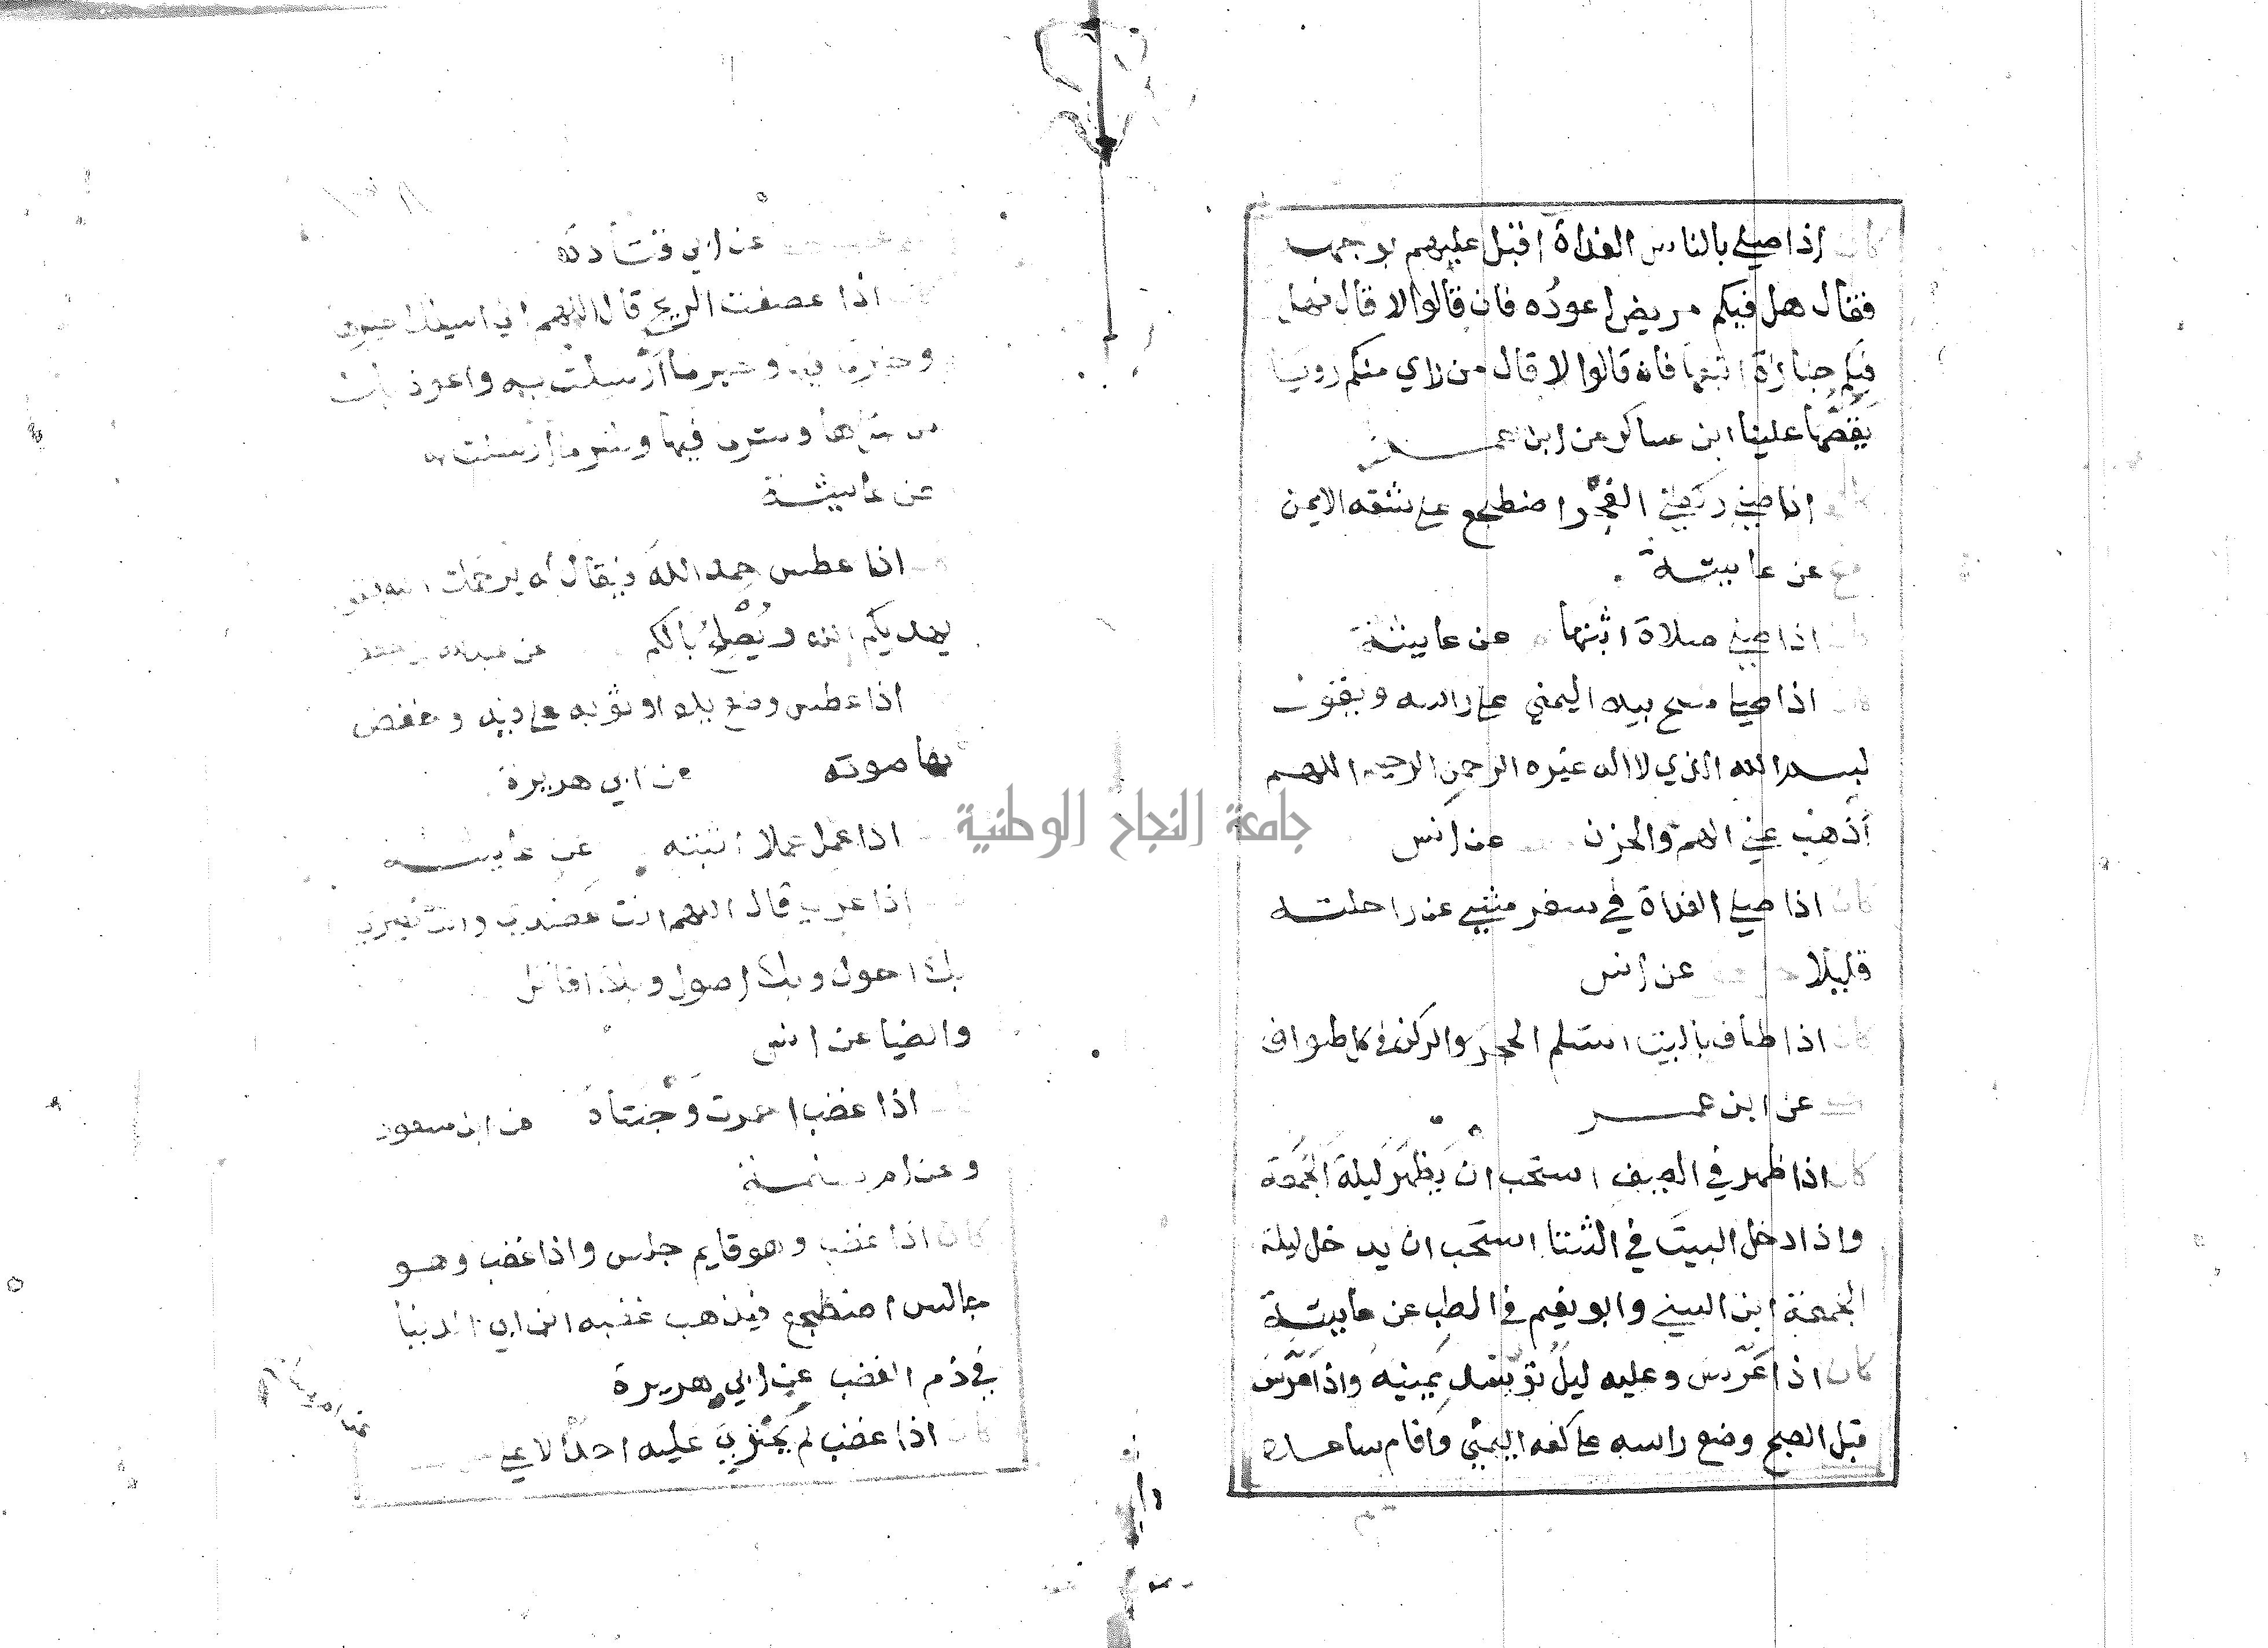 كان اذا صلي بالناس الغداة اقبل عليهم بوجهه
فقال هل فيكم مريض اعوده فان قالوا لا قال فهل
فيكم جنازة اتبعها فان قالوا لا قال من راي منكم رويا
يقصها علينا ابن عساكر عن ابن عمر
اذا صلي ركعتي الفجر اضطجع علي شقه الايمن
عن عايشة
اذا صلي صلاة اثبتها عن عايشة
كان اذا صلي مسح بيده اليمني علي راسه ويقول
بسم الله الذي لا اله غيره الرحمن الرحيم اللهم
أذهب عني الهم والحزن عن انس
كان اذا صلي الغداة في سفر مشي عن راحلته
قليلا عن انس
كان اذا طاف بالبيت استلم الحجر والركن في كل طواف
عن ابن عمر
كان اذا ظهر في الصيف استحب ان يظهر ليلة الجمعة
واذا دخل البيت في الشتا استحب ان يدخل ليلة
الجمعة ابن السني وابو نعيم في الطب عن عايشة
كان اذا عرس وعليه ليل توسد يمينه واذا عرس
قبل الصبح وضع راسه علي كفه اليمني واقام ساعده
عن ابي قتادة
اذا عصفت الريح قال اللهم اني اسيلك خيرها
وخير ما فيها وخير ما أرسلت به واعوذ بك
من شرها وشر ما فيها وشر ما ارسلت به
عن عايشة
اذا عطس حمد الله فيقال له يرحمك الله فيقول
يهديكم الله ويصلح بالكم
اذا عطس وضع يده او ثوبه علي فيه وخفض
بها صوته عن ابي هريرة
جامعة النجاح الوطنية
اذا عمل عملا اثبته عن عايشة
اذا غزي قال اللهم انت عضدي وانت نصيري
بك احول وبك اصول وبك اقاتل
والضيا عن انس
اذا غضب احمرت وجنتاه عن ابن مسعود
وعن ام سلمة
كان اذا غضب وهو قايم جلس واذا غضب وهو
جالس اضطجع فيذهب غضبه ابن ابي الدنيا
في ذم الغضب عن ابي هريرة
كان اذا غضب لم يجتري عليه احد الا علي